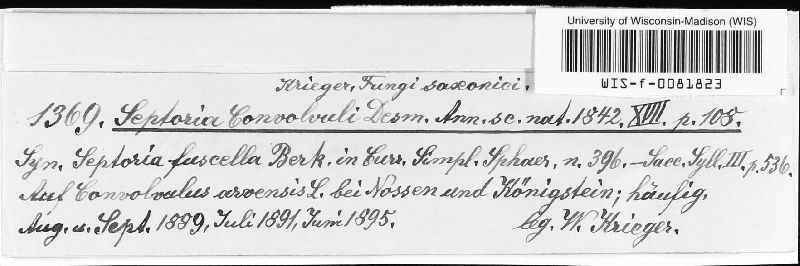 University of Wisconsin-Madison (WIS)
WIS-f-0081823
Krieger, Fungi saxonici.
1369. Septoria Convolvuli Desm. Ann. sc. nat. 1842. XVII. p. 108.
Syn. Septoria fuscella Berk. in Curr. Simpl. Sphaer, n. 396. – Sacc. Syll. III. p. 536.
Auf Convolvulus arvensis L. bei Nossen und Königstein; häufig.
Aug. u. Sept. 1889, Juli 1891, Juni 1895. leg. W. Krieger.